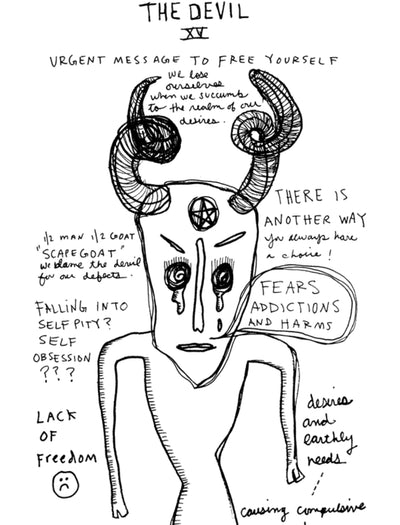 THE DEVIL
XV
URGENT MESSAGE TO FREE YOURSELF
we lose
ourselves
when we succumb
to the realm of our
desires.
THERE IS
ANOTHER WAY
you always have
a choice!
1/2 MAN 1/2 GOAT
"SCAPEGOAT"
we blame the devil
for our defects.
FEARS
ADDICTIONS
AND HARMS
FALLING INTO
SELF PITY?
SELF
OBSESSION
???
LACK
OF
FREEDOM
desires
and
earthly
needs
causing compulsive